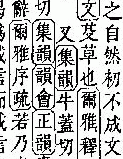 之自然初不成文
文芟草也爾雅釋
又集韻牛蓋切
切集韻韻會正韻
爾雅序疏若乃